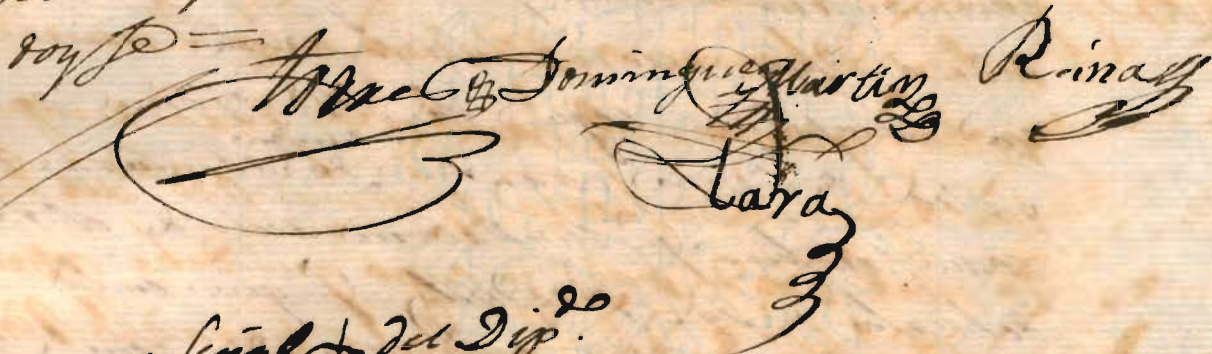 doy fe = Torre Dominguez Martin Reina
Lara
Señal + del Dip.do